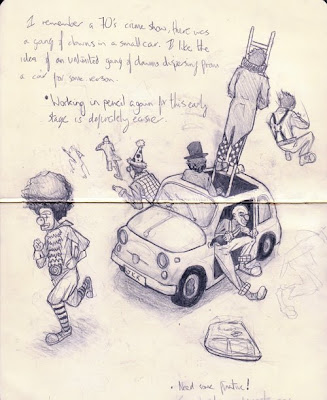 I remember a 70's crime show, there was
a gang of clowns in a small car. I like the
idea of an unlimited gang of clowns dispersing from
a car for some reason.
• Working in pencil again for this early
stage is definitely easier.
• Need some practice!